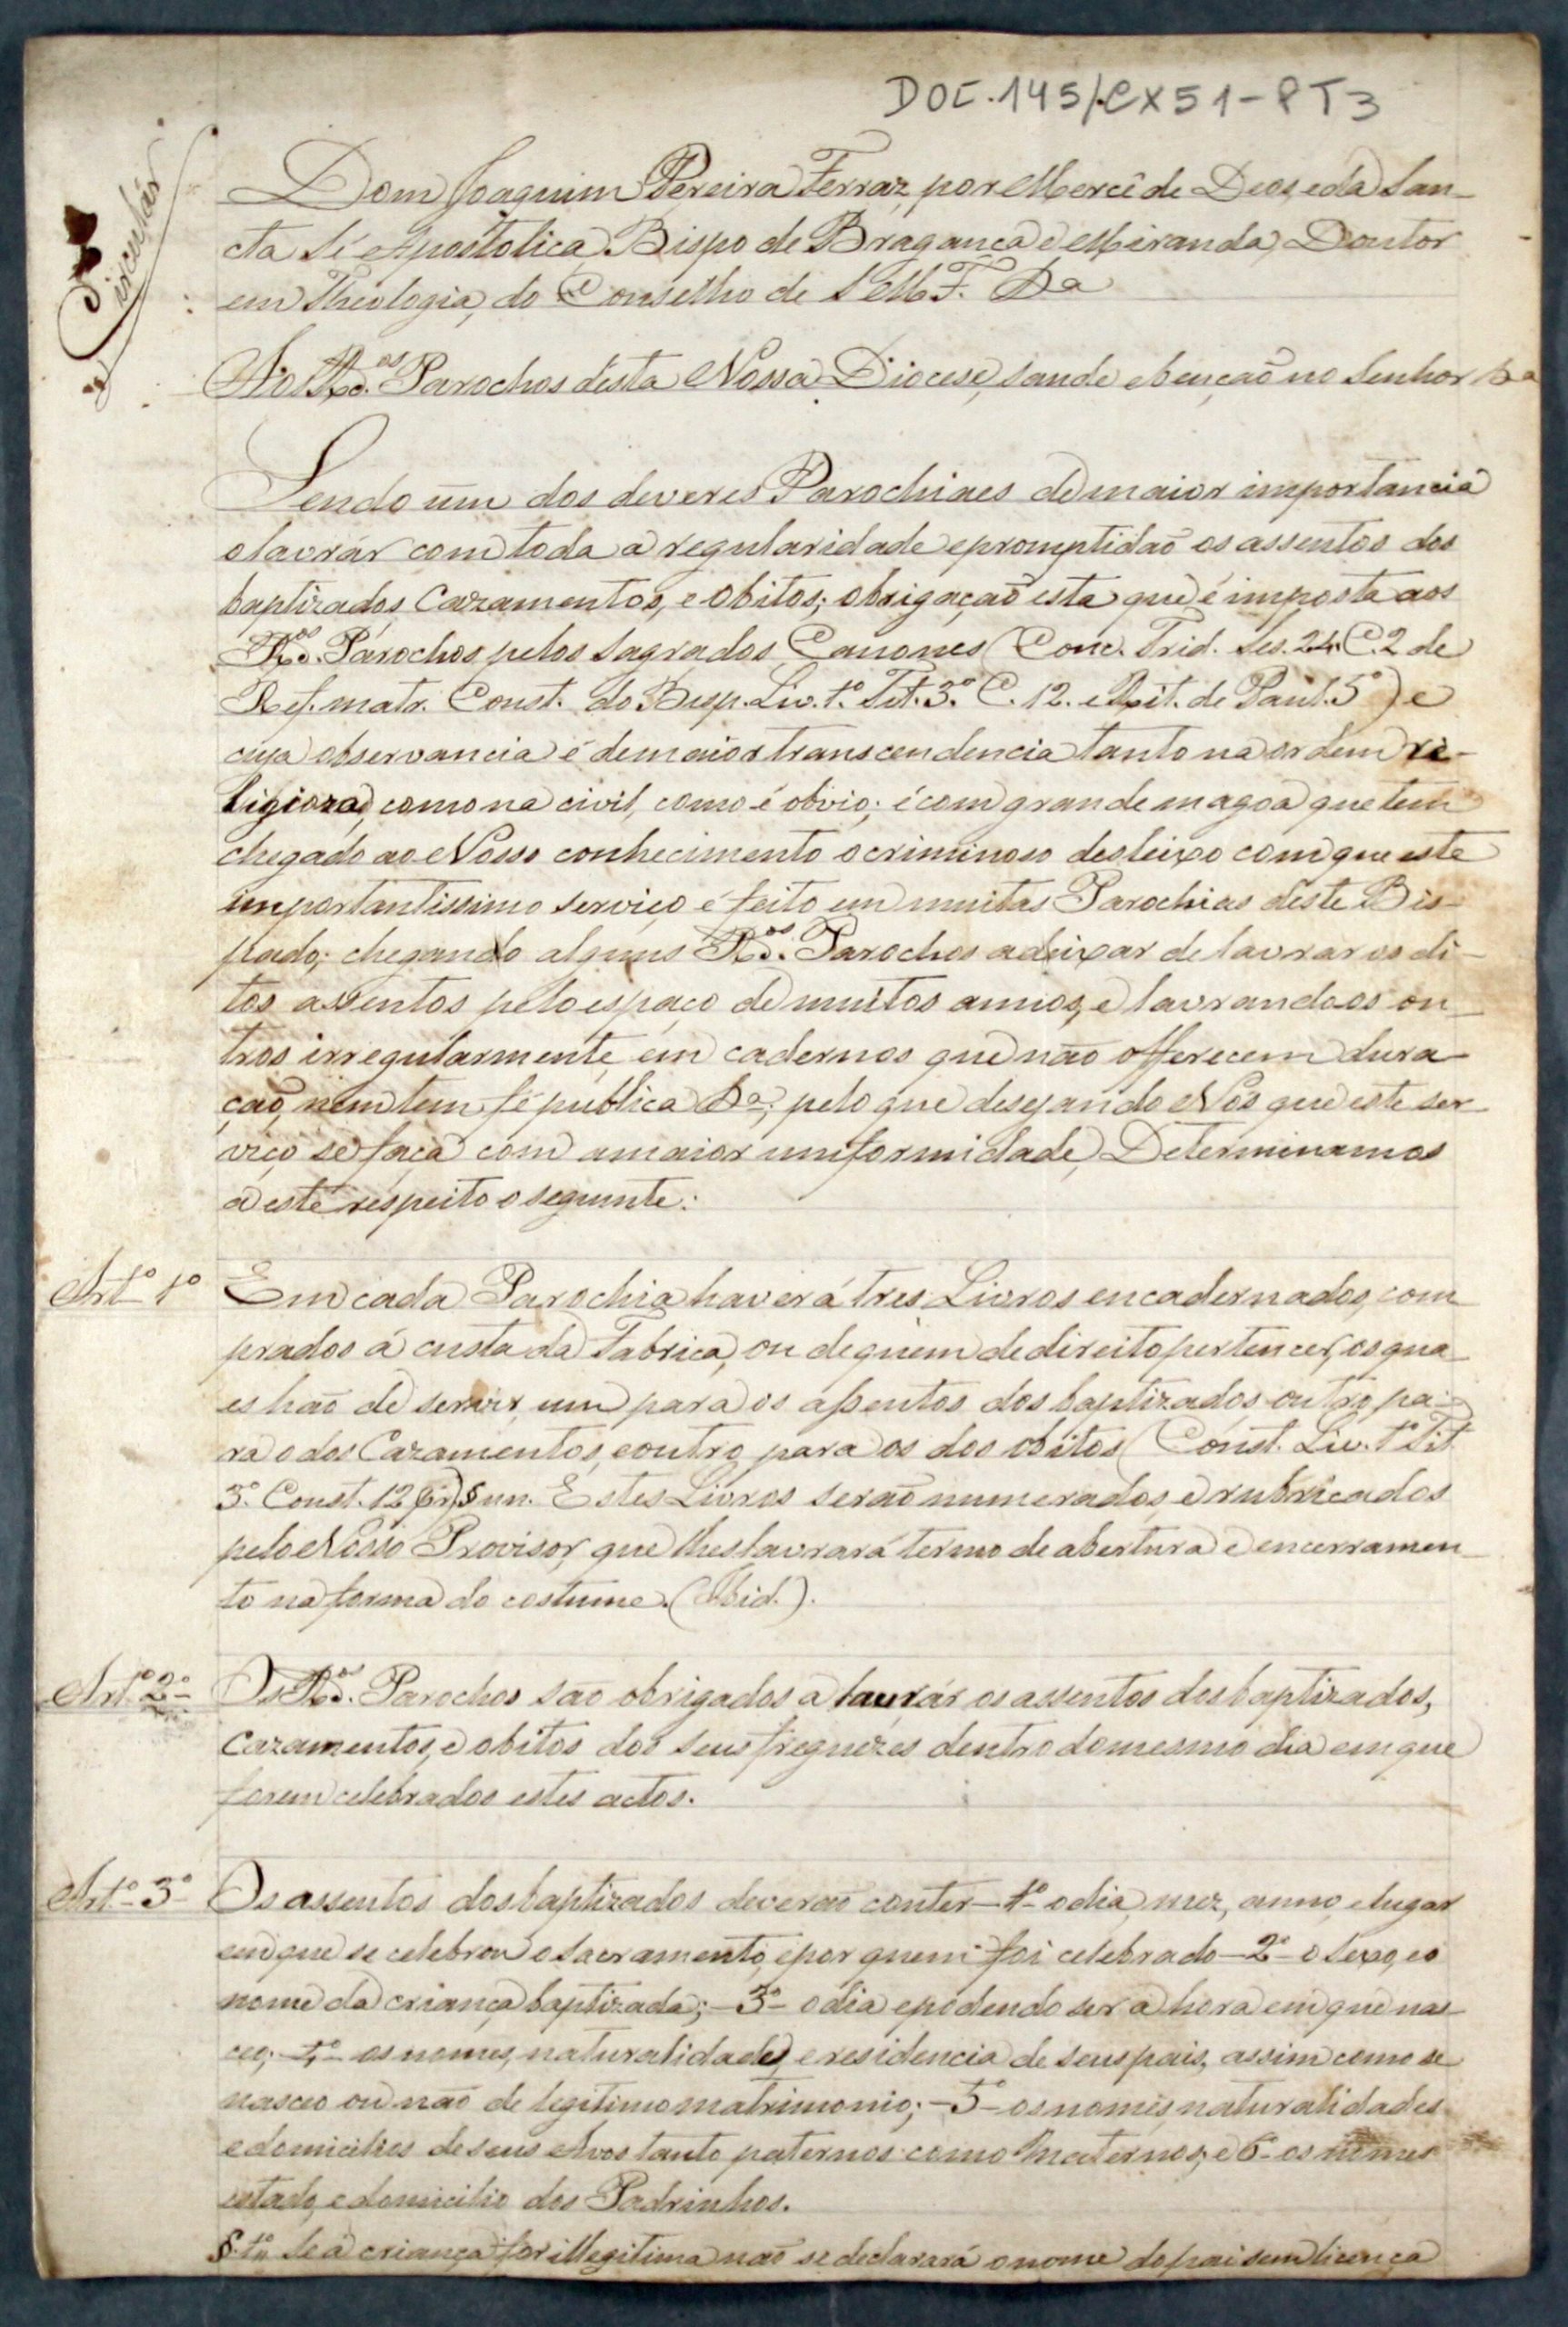 DOC.145/CX51-PT3
Circular
Dom Joaquim Pereira Ferraz, por Mercê de Deos, e da San-
cta Sé Apostolica, Bispo de Bragança e Miranda, Doutor
em Theologia, do Conselho de S. M. F. &a
Aos R.dos Parochos desta Nossa Diocese, saude e benção no Senhor &a
Sendo um dos deveres Parochiaes de maior importancia
o lavrár com toda a regularidade e promptidaõ os assentos dos
baptizados, Cazamentos, e Obitos; obrigaçaõ esta que é imposta aos
R.dos Parochos pelos Sagrados Canones (Conc. Trid. Ses. 24. C. 2 de
Ref. matr. Const. do Bisp. Liv. 1.º Tit. 3.º C. 12. e Rit. de Paul. 5º) e
cuja observancia é de maior transcendencia tanto na ordem re-
ligioza, como na civil, como é obvio; é com grande magoa que tem
chegado ao Nosso conhecimento o criminoso desleixo com que este
importantissimo serviço é feito em muitas Parochias deste Bis-
pado; chegando alguns R.dos Parochos a deixar de lavrar os di-
tos assentos pelo espaço de muitos annos, e lavrando-os ou-
tros irregularmente, em cadernos que não offerecem dura-
çaõ, nem tem fé publica &a; pelo que desejando Nós que este ser-
viço se faça com a maior uniformidade, Determinamos
a este respeito o seguinte:
Art.º 1º Em cada Parochia haverá tres Livros encadernados, com-
prados á custa da Fabrica, ou de quem de direito pertencer, os qua-
es haõ de servir, um para os assentos dos baptizados outro pa-
ra o dos Cazamentos, e outro para os dos obitos (Const. Liv. 1º Tit.
3º. Const. 12 § un. Estes Livros seraõ numerados, e rubricados
pelo Nosso Provisor, que lhes lavrará termo de abertura e encerramen-
to na forma do costume. (Ibid.).
Art.º 2º Os R.dos Parochos saõ obrigados a lavrár os assentos dos baptizados,
Cazamentos, e obitos dos seus freguezes dentro do mesmo dia em que
forem celebrados estes actos.
Art.º 3º Os assentos dos baptizados deveraõ conter - 1º o dia, mez, anno, e lugar
em que se celebrou o Sacramento, e por quem foi celebrado - 2º o sexo, e o
nome da criança baptizada; - 3º o dia e podendo ser a hora em que nas-
ceo; - 4º os nomes, naturalidades, e residencia de seus pais, assim como se
nasceo ou naõ de legitimo matrimonio; - 5º os nomes naturalidades
e domicilios de seus Avos tanto paternos como maternos; e 6º os nomes
estado, e domicilio dos Padrinhos.
§ 1º Se a criança for illegitima naõ se declarará o nome do pai sem licença